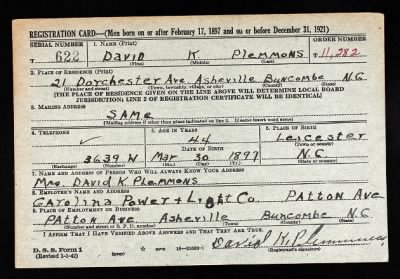 REGISTRATION CARD—(Men born on or after February 17, 1897 and on or before December 31, 1921)
SERIAL NUMBER 1. NAME (Print) ORDER NUMBER
T 622 David K. Plemmons T 11,282
(First) (Middle) (Last)
2. PLACE OF RESIDENCE (Print)
21 Dorchester Ave. Asheville Buncombe N.C.
(Number and street) (Town, township, village, or city) (County) (State)
[THE PLACE OF RESIDENCE GIVEN ON THE LINE ABOVE WILL DETERMINE LOCAL BOARD
JURISDICTION; LINE 2 OF REGISTRATION CERTIFICATE WILL BE IDENTICAL]
3. MAILING ADDRESS
SAME
[Mailing address if other than place indicated on line 2. If same insert word same]
4. TELEPHONE 5. AGE IN YEARS 6. PLACE OF BIRTH
44 Leicester
DATE OF BIRTH (Town or county)
3639 W Mar 30 1897 N.C.
(Exchange) (Number) (Mo.) (Day) (Yr.) (State or country)
7. NAME AND ADDRESS OF PERSON WHO WILL ALWAYS KNOW YOUR ADDRESS
Mrs. David K. Plemmons
8. EMPLOYER'S NAME AND ADDRESS
Carolina Power + Light Co. Patton Ave
9. PLACE OF EMPLOYMENT OR BUSINESS
Patton Ave Asheville Buncombe N.C.
(Number and street or R. F. D. number) (Town) (County) (State)
I AFFIRM THAT I HAVE VERIFIED ABOVE ANSWERS AND THAT THEY ARE TRUE.
D. S. S. Form 1 David K. Plemmons
(Revised 1-1-42) (over) (Registrant's signature)